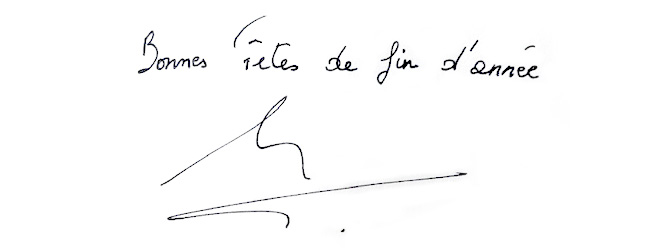 Bonnes Fêtes de fin d'année